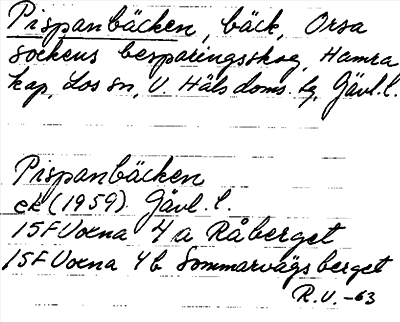 Pispanbäcken, bäck, Orsa
sockens besparingsskog, Hamra
kap, Los sn, V. Häls doms. tg, Gävl. l.
Pispanbäcken
ek (1959) Gävl. l.
15F Voxna 4a Råberget
15F Voxna 4b Sommarvägsberget
R.V. -63